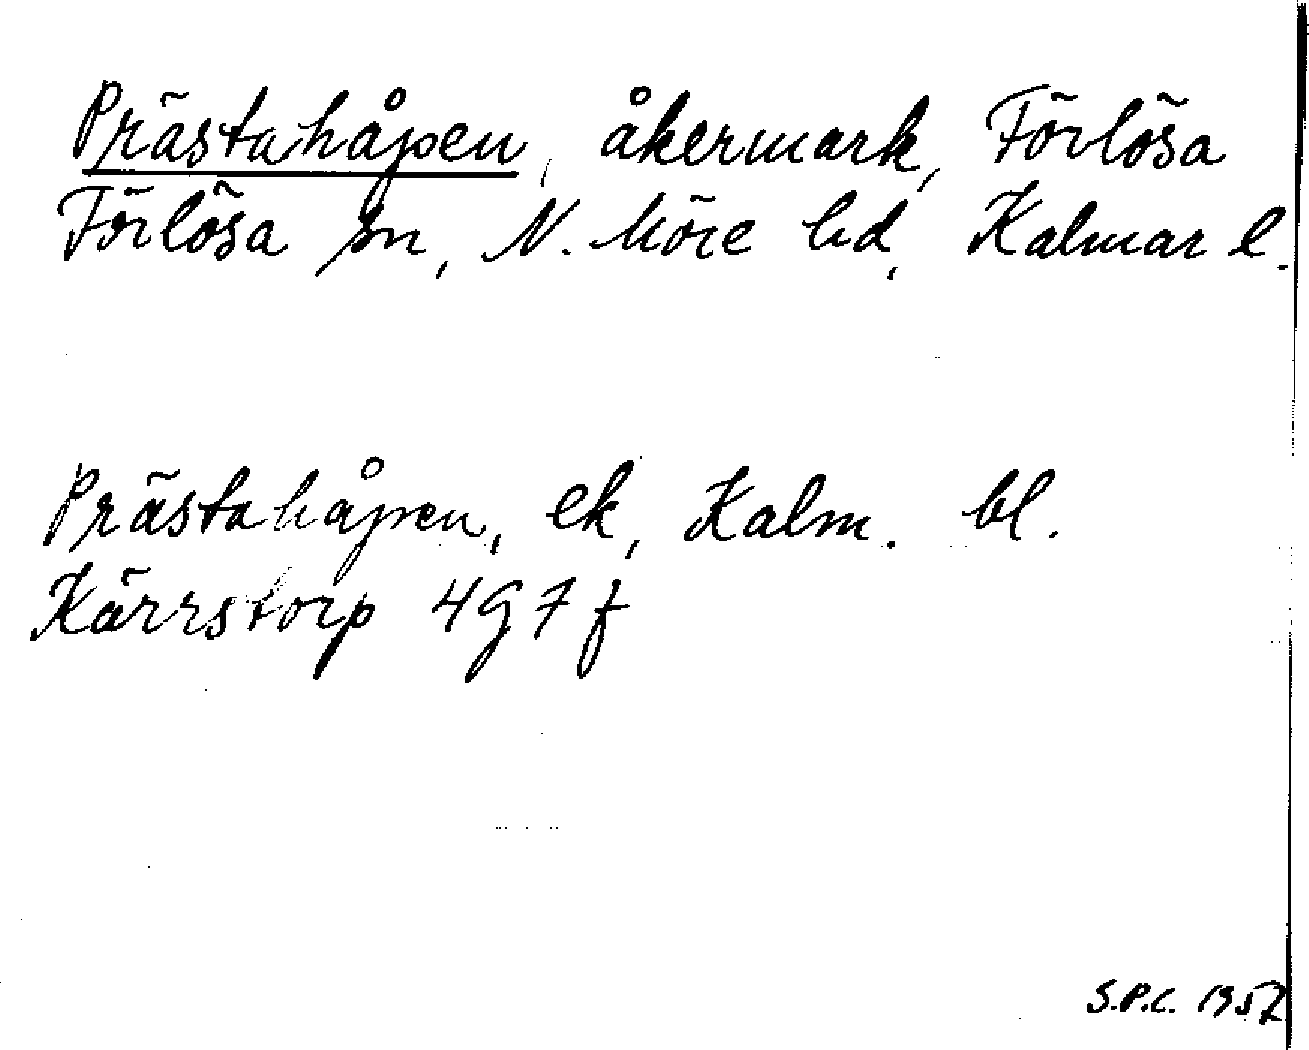 Prästahåpen, åkermark, Förlösa
Förlösa sn, N. Möre hd, Kalmar l.
Prästahåpen, ek, Kalm. bl.
Kärrstorp 4G7f
S.P.C. 1957